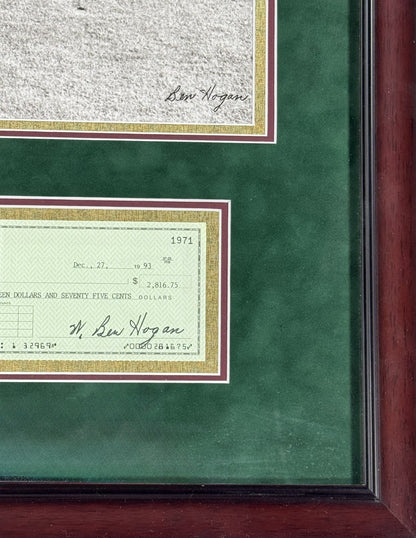 Ben Hogan
1971
Dec., 27, 19 93
$ 2,816.75
EEN DOLLARS AND SEVENTY FIVE CENTS DOLLARS
W. Ben Hogan
⑆ 1 32969⑈ ⑈0000281675⑈